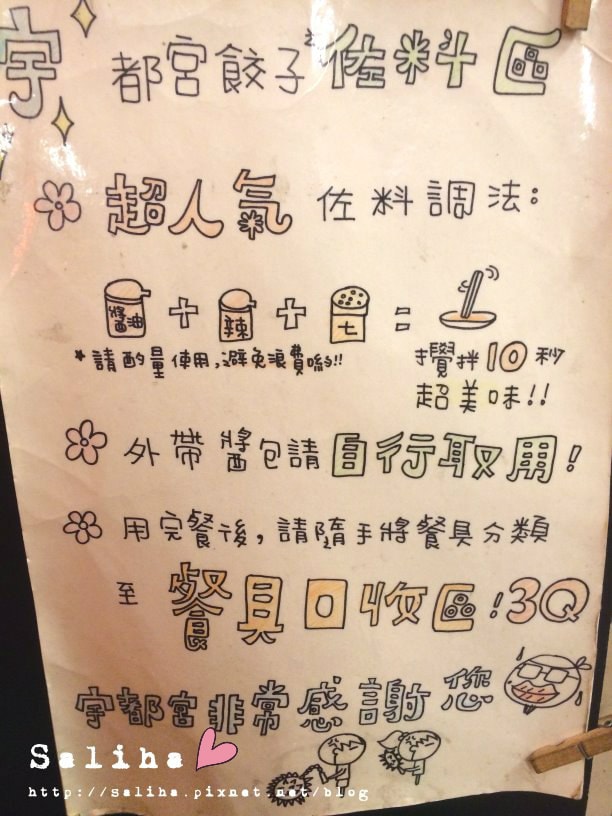 宇都宮餃子佐料區
超人氣 佐料調法:
醬油 + 辣 + 七 =
*請酌量使用,避免浪費喲!! 攪拌10秒
超美味!!
外帶醬包請自行取用!
用完餐後,請隨手將餐具分類
至 餐具回收區!3Q
宇都宮非常感謝您
Saliha
http://saliha.pixnet.net/blog